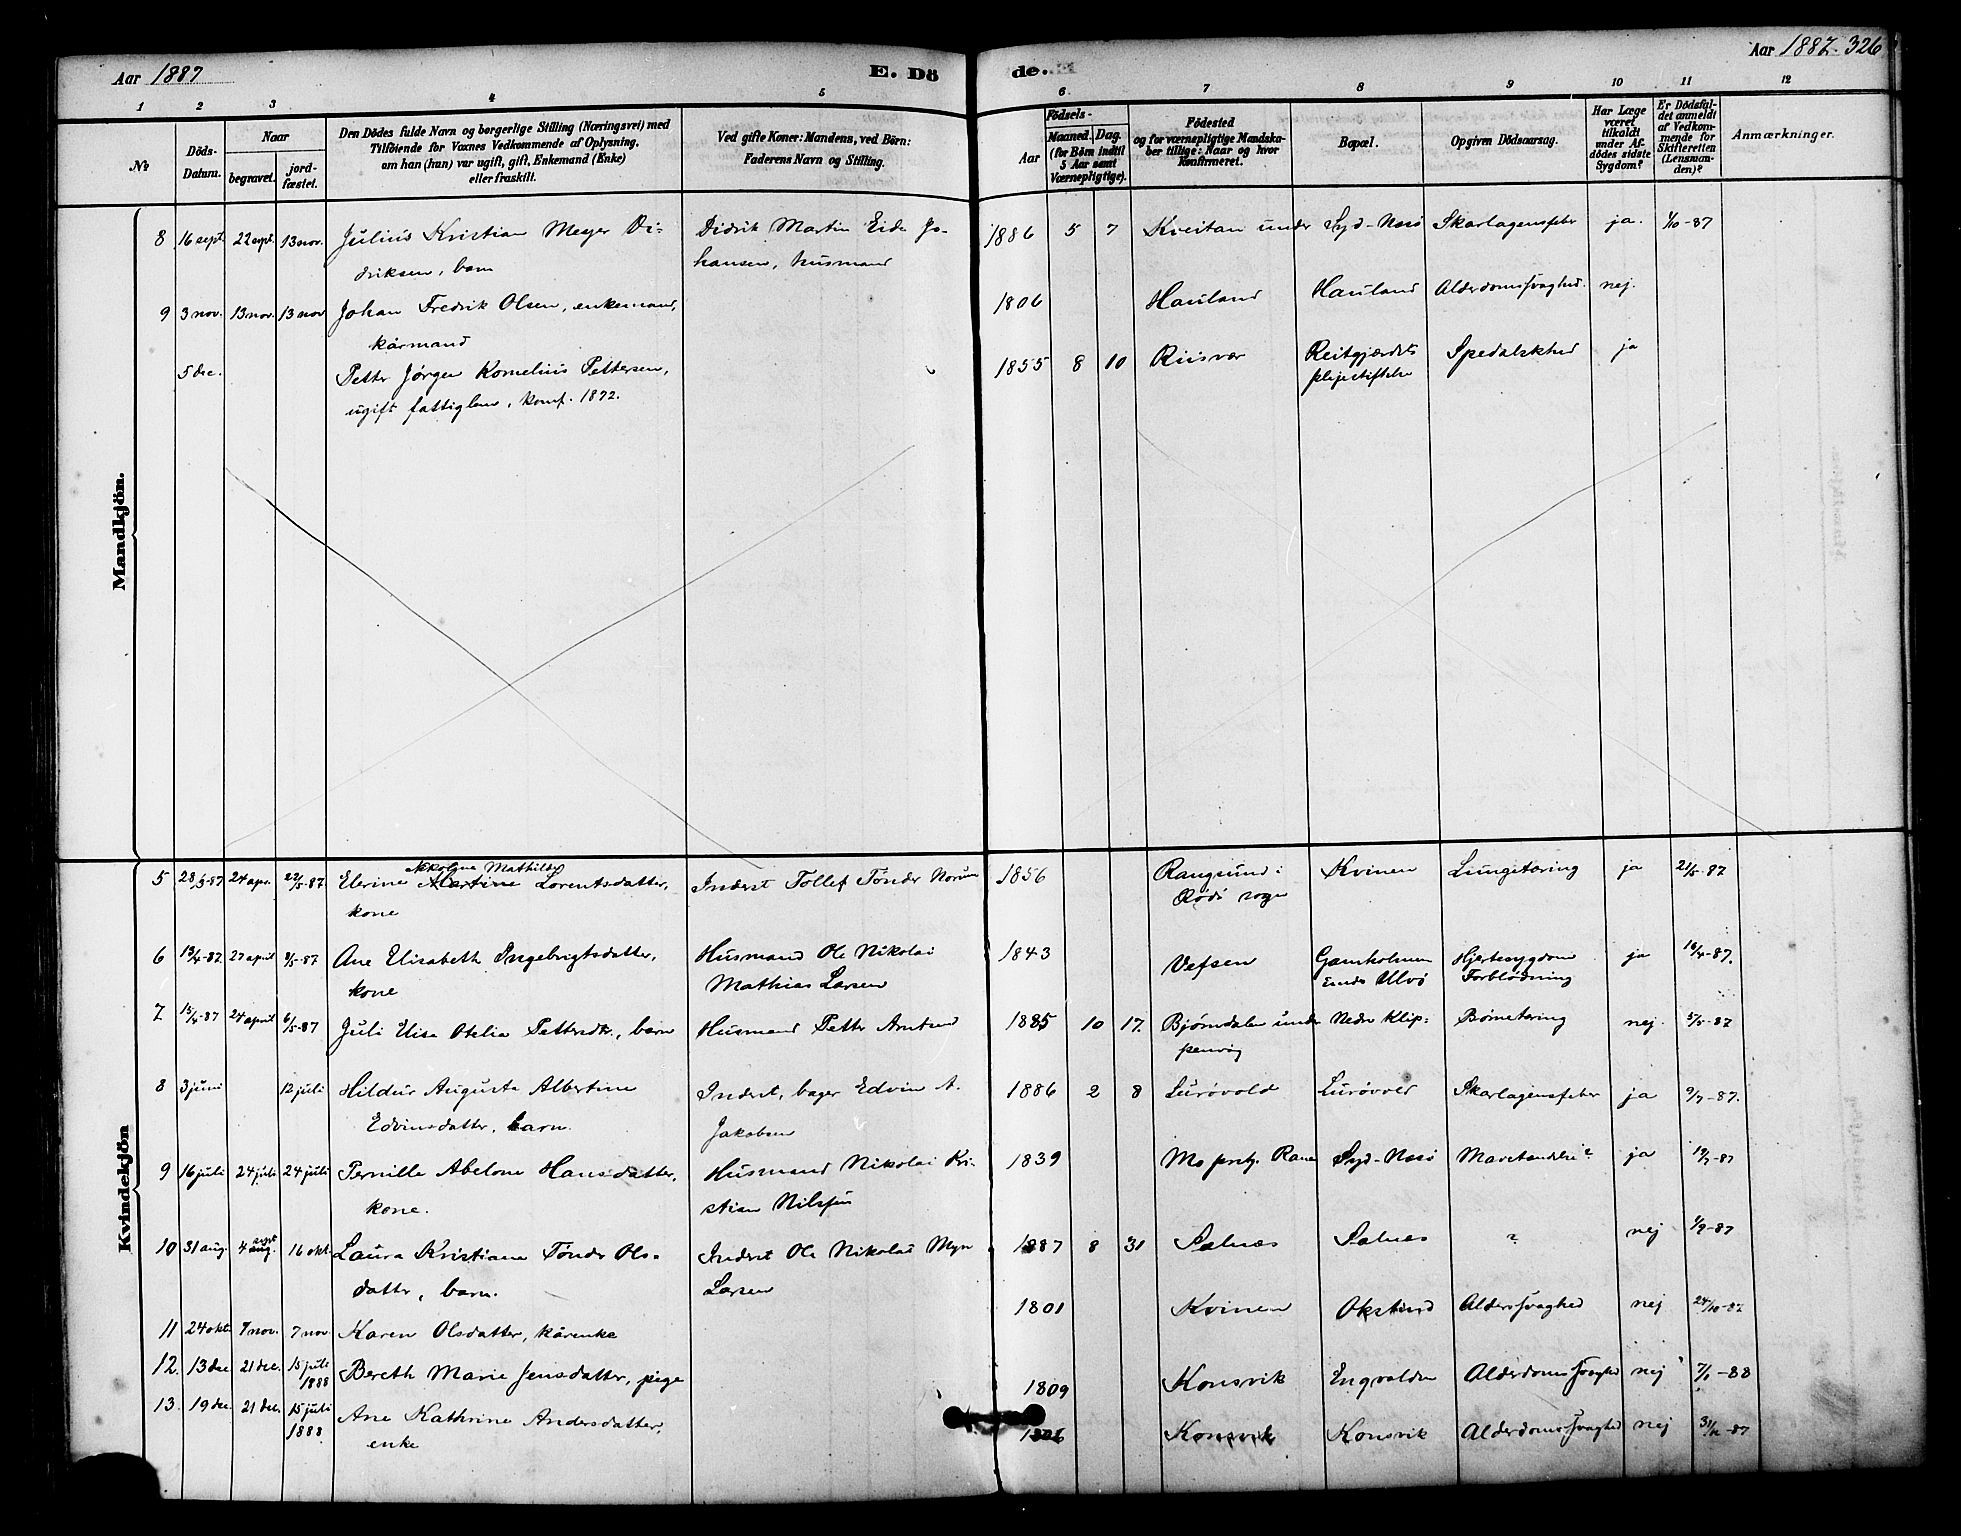 Aar 1887
E. Dö
de.
Aar 1887. 326
1 2 3 4 5 6 7 8 9 10 11 12
No
Döds-Datum.
Naar
begravet.
jordfæstet.
Den Dödes fulde Navn og borgerlige Stilling (Næringsvei) med
Tilföiende for Voxnes Vedkommende af Oplysning,
om han (hun) var ugift, gift, Enkemand (Enke)
eller fraskilt.
Ved gifte Koner: Mandens, ved Börn:
Faderens Navn og Stilling.
Födsels-
Aar
Maaned. Dag.
(for Börn indtil
5 Aar samt
Værnepligtige).
Födested
og for værnepligtige Mandska-
ber tillige: Naar og hvor
konfirmeret.
Bopæl.
Opgiven Dödsaarsag.
Har Læge
været
tilkaldt
under Af-
dödes sidste
Sygdom?
Er Dödsfal-
det anmeldt
af Vedkom-
mende for
Skifteretten
(Lensman-
den)?
Anmærkninger.
Mandkjön.
8 16 sept. 22 sept. 13 nov. Julius Kristian Meyer Di- Didrik Martin Eide Jo- 1886 5 7 Kveitan under Syd-Nesö Skarlagensfeber ja. 1/10-87
driksen, barn hansen, husmand
9 3 nov. 13 nov. 13 nov Johan Fredrik Olsen, enkemand, 1806 Hauland Hauland Alderdomssvaghed. nej.
kårmand
5 dec. Petter Jörgen Kornelius Pettersen, 1855 8 10 Riisvær Reitgjerdets Spedalskhed ja
ugift fattiglem, konf. 1872. plejestiftelse
Kvindekjön
Nikoline Mathilde
5 28/3-87 24 apr. 22/5-87 Elerine Martine Lorentsdatter, Inderst Tollef Tönder Norum 1856 Rangsund i Kvinen Lungetæring ja 21/5-87
kone Rödö sogn
6 13/4-87 27 april 8/5-87 Ane Elisabeth Ingebrigtsdatter, Husmand Ole Nikolai 1843 Vefsen Gamholmen Hjertesygdom ja 18/4-87.
kone Mathias Larsen under Ulvö Forblödning
7 13/4-87 24 april 6/5-87 Juli Elise Otelia Pettersdtr., barn Husmand Petter Arntsen 1885 10 17. Bjørndalen under Nedre Klip- Børnetæring nej. 5/5-87
penvåg
8 3 juni 12 juli Hildur Augusta Albertine Inderst, bager Edvin A. 1886 2 8 Lurövold Lurövold Skarlagensfeber ja 9/7-87.
Edvinsdatter, barn. Jakobsen
9 16 juli 24 juli 24 juli Pernille Abelone Hansdatter, Husmand Nikolai Kri- 1839 Mo prstg. Ranen Syd-Nesö ja 19/7-87
kone. stian Nilssen
10 31 aug. 4 sept aug. 16 okt. Laura Kristiane Tönder Ols- Inderst Ole Nikolai Myn 1887 8 31 Selnes Selnes ? nej 1/9-87
datter, barn. Larsen
11 24 okt. 7 nov. 7 nov. Karen Olsdatter, kårenke 1801 Kvinen Oksund Alderssvaghed nej 24/10-87
12. 13 dec 21 dec. 15 juli 1888 Bereth Marie Jensdatter, pige 1809 Konsvik Engvolden Alderdomssvaghed nej 7/1-88
13. 19 dec. 21 dec. 15 juli 1888 Ane Kathrine Andersdatter, Konsvik Konsvik Alderdomssvaghed nej
enke